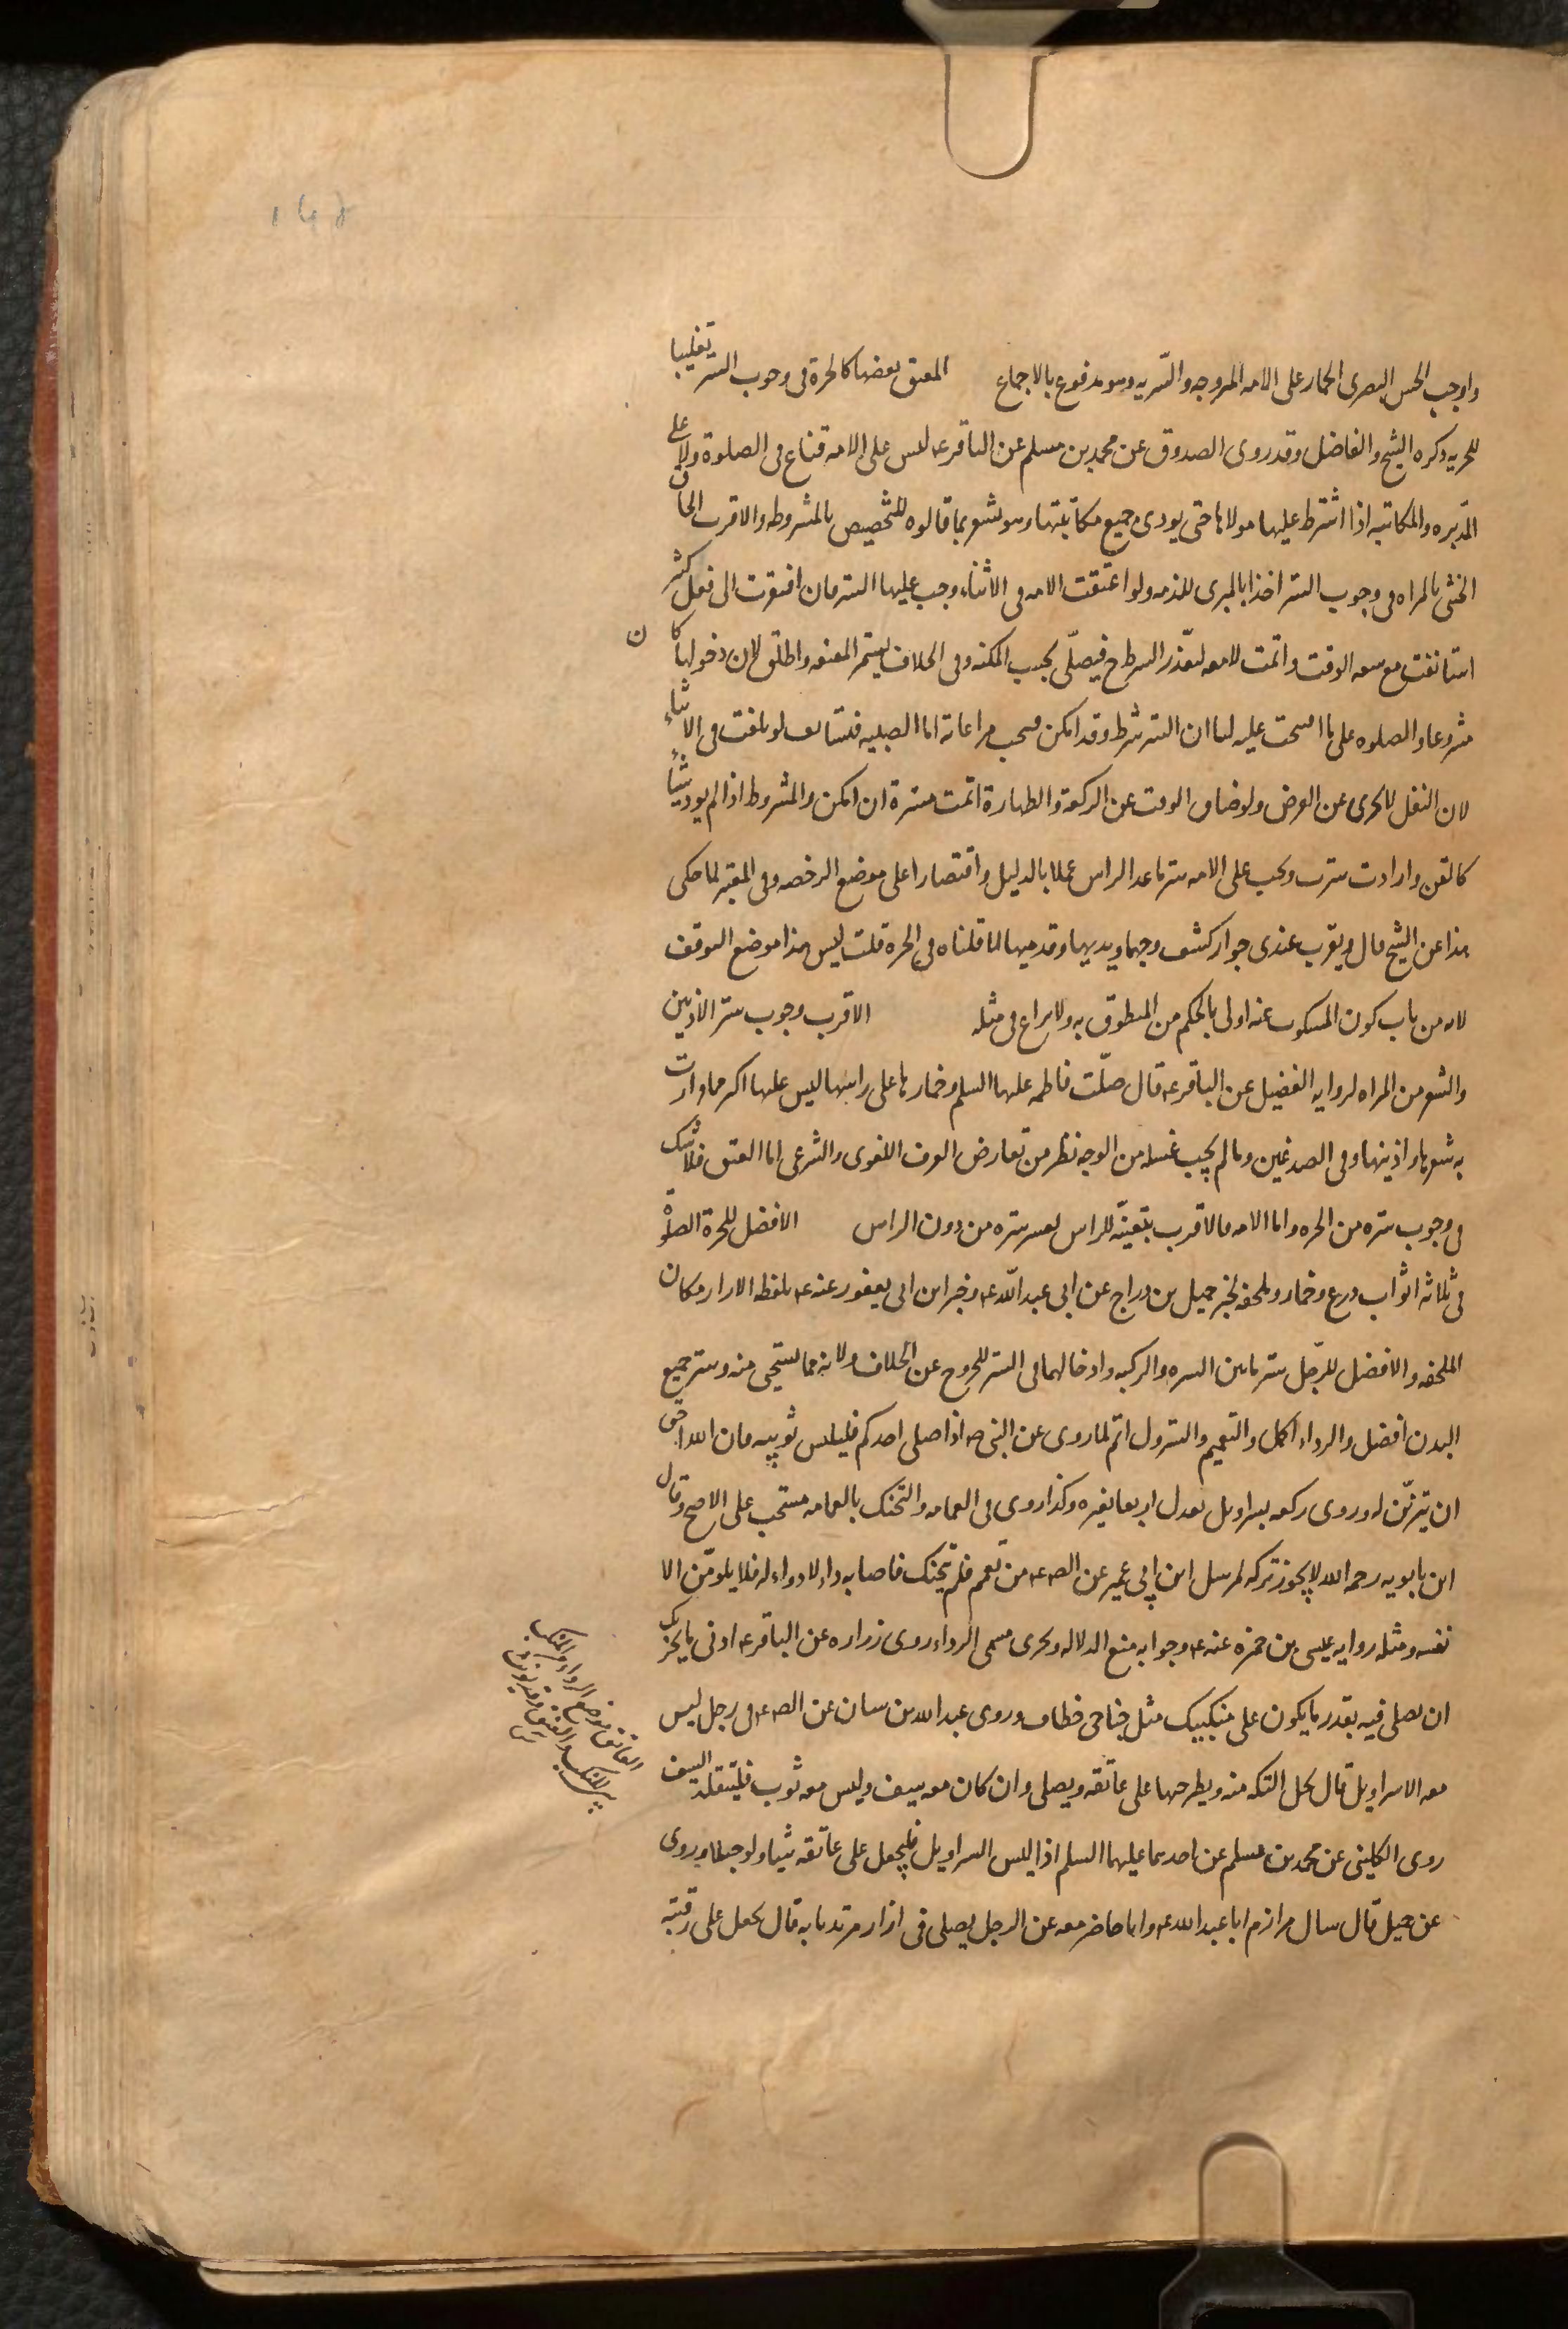 واوجب الحسن البصرى الخمار على الامه المزوجه والسّريه وهو مدفوع بالاجماع المعتق بعضها كالحرة فى وجوب الستر تغليبا
للحريه ذكره الشيخ والفاضل وقد روى الصدوق عن محمد بن مسلم عن الباقر ع ليس على الامه قناع فى الصلوة ولا على
المدبره والمكاتبه اذا اشترط عليها مولاها حتى يودى جميع مكاتبتها وهو يشعر بما قالوه للتخصيص بالمشروطه والاقرب الحاق
الخنثى بالمراه فى وجوب الستر اخذا بالمبرى للذمه ولو اعتقت الامه فى الاثناء وجب عليها الستر فان افتقرت الى فعل كثير
استانفت مع سعه الوقت واتمت لا معه لتعذّر الشرط ح فيصلّى بحسب المكنه وفى الخلاف يستمر المعتقه واطلق لان دخولها كان
مشروعا والصلوه على ما افتتحت عليه لنا ان الستر شرط وقد امكن فيجب مراعاته اما الصبيه فتستانف لو بلغت فى الاثناء
لان النفل لا يجزى عن الفرض ولو ضاق الوقت عن الركعة والطهارة اتمت مستترة ان امكن والمشروط اذا لم يود شيئا
كالقن وان ادت سترت ويجب على الامه ستر ما عدا الراس عملا بالدليل واقتصارا على موضع الرخصه وفى المعتبر لما حكى
هذا عن الشيخ قال ويقرب عندى جواز كشف وجهها ويديها وقدميها لما قلناه فى الحره قلت ليس هذا موضع التوقف
لانه من باب كون المسكوت عنه اولى بالحكم من المنطوق به ولا نزاع فى مثله الاقرب وجوب ستر الاذنين
والشعر من المراه لروايه الفضيل عن الباقر ع قال صلّت فاطمه عليها السلم وخمارها على راسها ليس عليها اكثر مما وارت
به شعرها واذنيها وفى الصدغين وما لم يجب غسله من الوجه نظر من تعارض العرف اللغوى والشرعى اما العنق فلا شك
فى وجوب ستره من الحره واما الامه فالاقرب بتعيّنه للراس لعسر ستره من دون الراس الافضل للحرة الصلوة
فى ثلاثه اثواب درع وخمار وملحفه لخبر جميل بن دراج عن ابى عبد اللّه ع وخبر ابن ابى يعفور عنه ع بلفظه الازار مكان
الملحفه والافضل للرّجل ستر ما بين السره والركبه وادخالهما فى الستر للخروج عن الخلاف ولانه مما يستحيى منه وستر جميع
البدن افضل والرداء اكمل والتعميم والتسرول اتم لما روى عن النبى ص اذا صلى احدكم فليلبس ثوبيه فان الله احق
ان يتزيّن له وروى ركعه بسراويل تعدل اربعا بغيره وكذا روى فى العمامه والتحنك بالعمامه مستحب على الاصح وقال
ابن بابويه رحمه الله لا يجوز تركه لمرسل ابن ابى عمير عن الص ع من تعمم فلم يتحنك فاصابه داء لا دواء له فلا يلومّن الا
نفسه ومثله روايه عيسى بن حمزه عنه ع وجوابه منع الدلاله ويجزى مسمى الرداء روى زراره عن الباقر ع ادنى ما يجزيك
ان تصلى فيه بقدر ما يكون على منكبيك مثل جناحى خطاف وروى عبد الله بن سنان عن الص ع فى رجل ليس
معه الا سراويل قال يحل التكه منه ويطرحها على عاتقه ويصلى وان كان معه سيف وليس معه ثوب فليتقلد السيف
روى الكلينى عن محمد بن مسلم عن احدهما عليهما السلم اذا لبس السراويل فليجعل على عاتقه شيئا ولو حبلا وروى
عن جميل قال سال مرازم ابا عبد الله ع وانا حاضر معه عن الرجل يصلى فى ازار مرتديا به قال يجعل على رقبته
العاتق موضع الرداء من المنكب